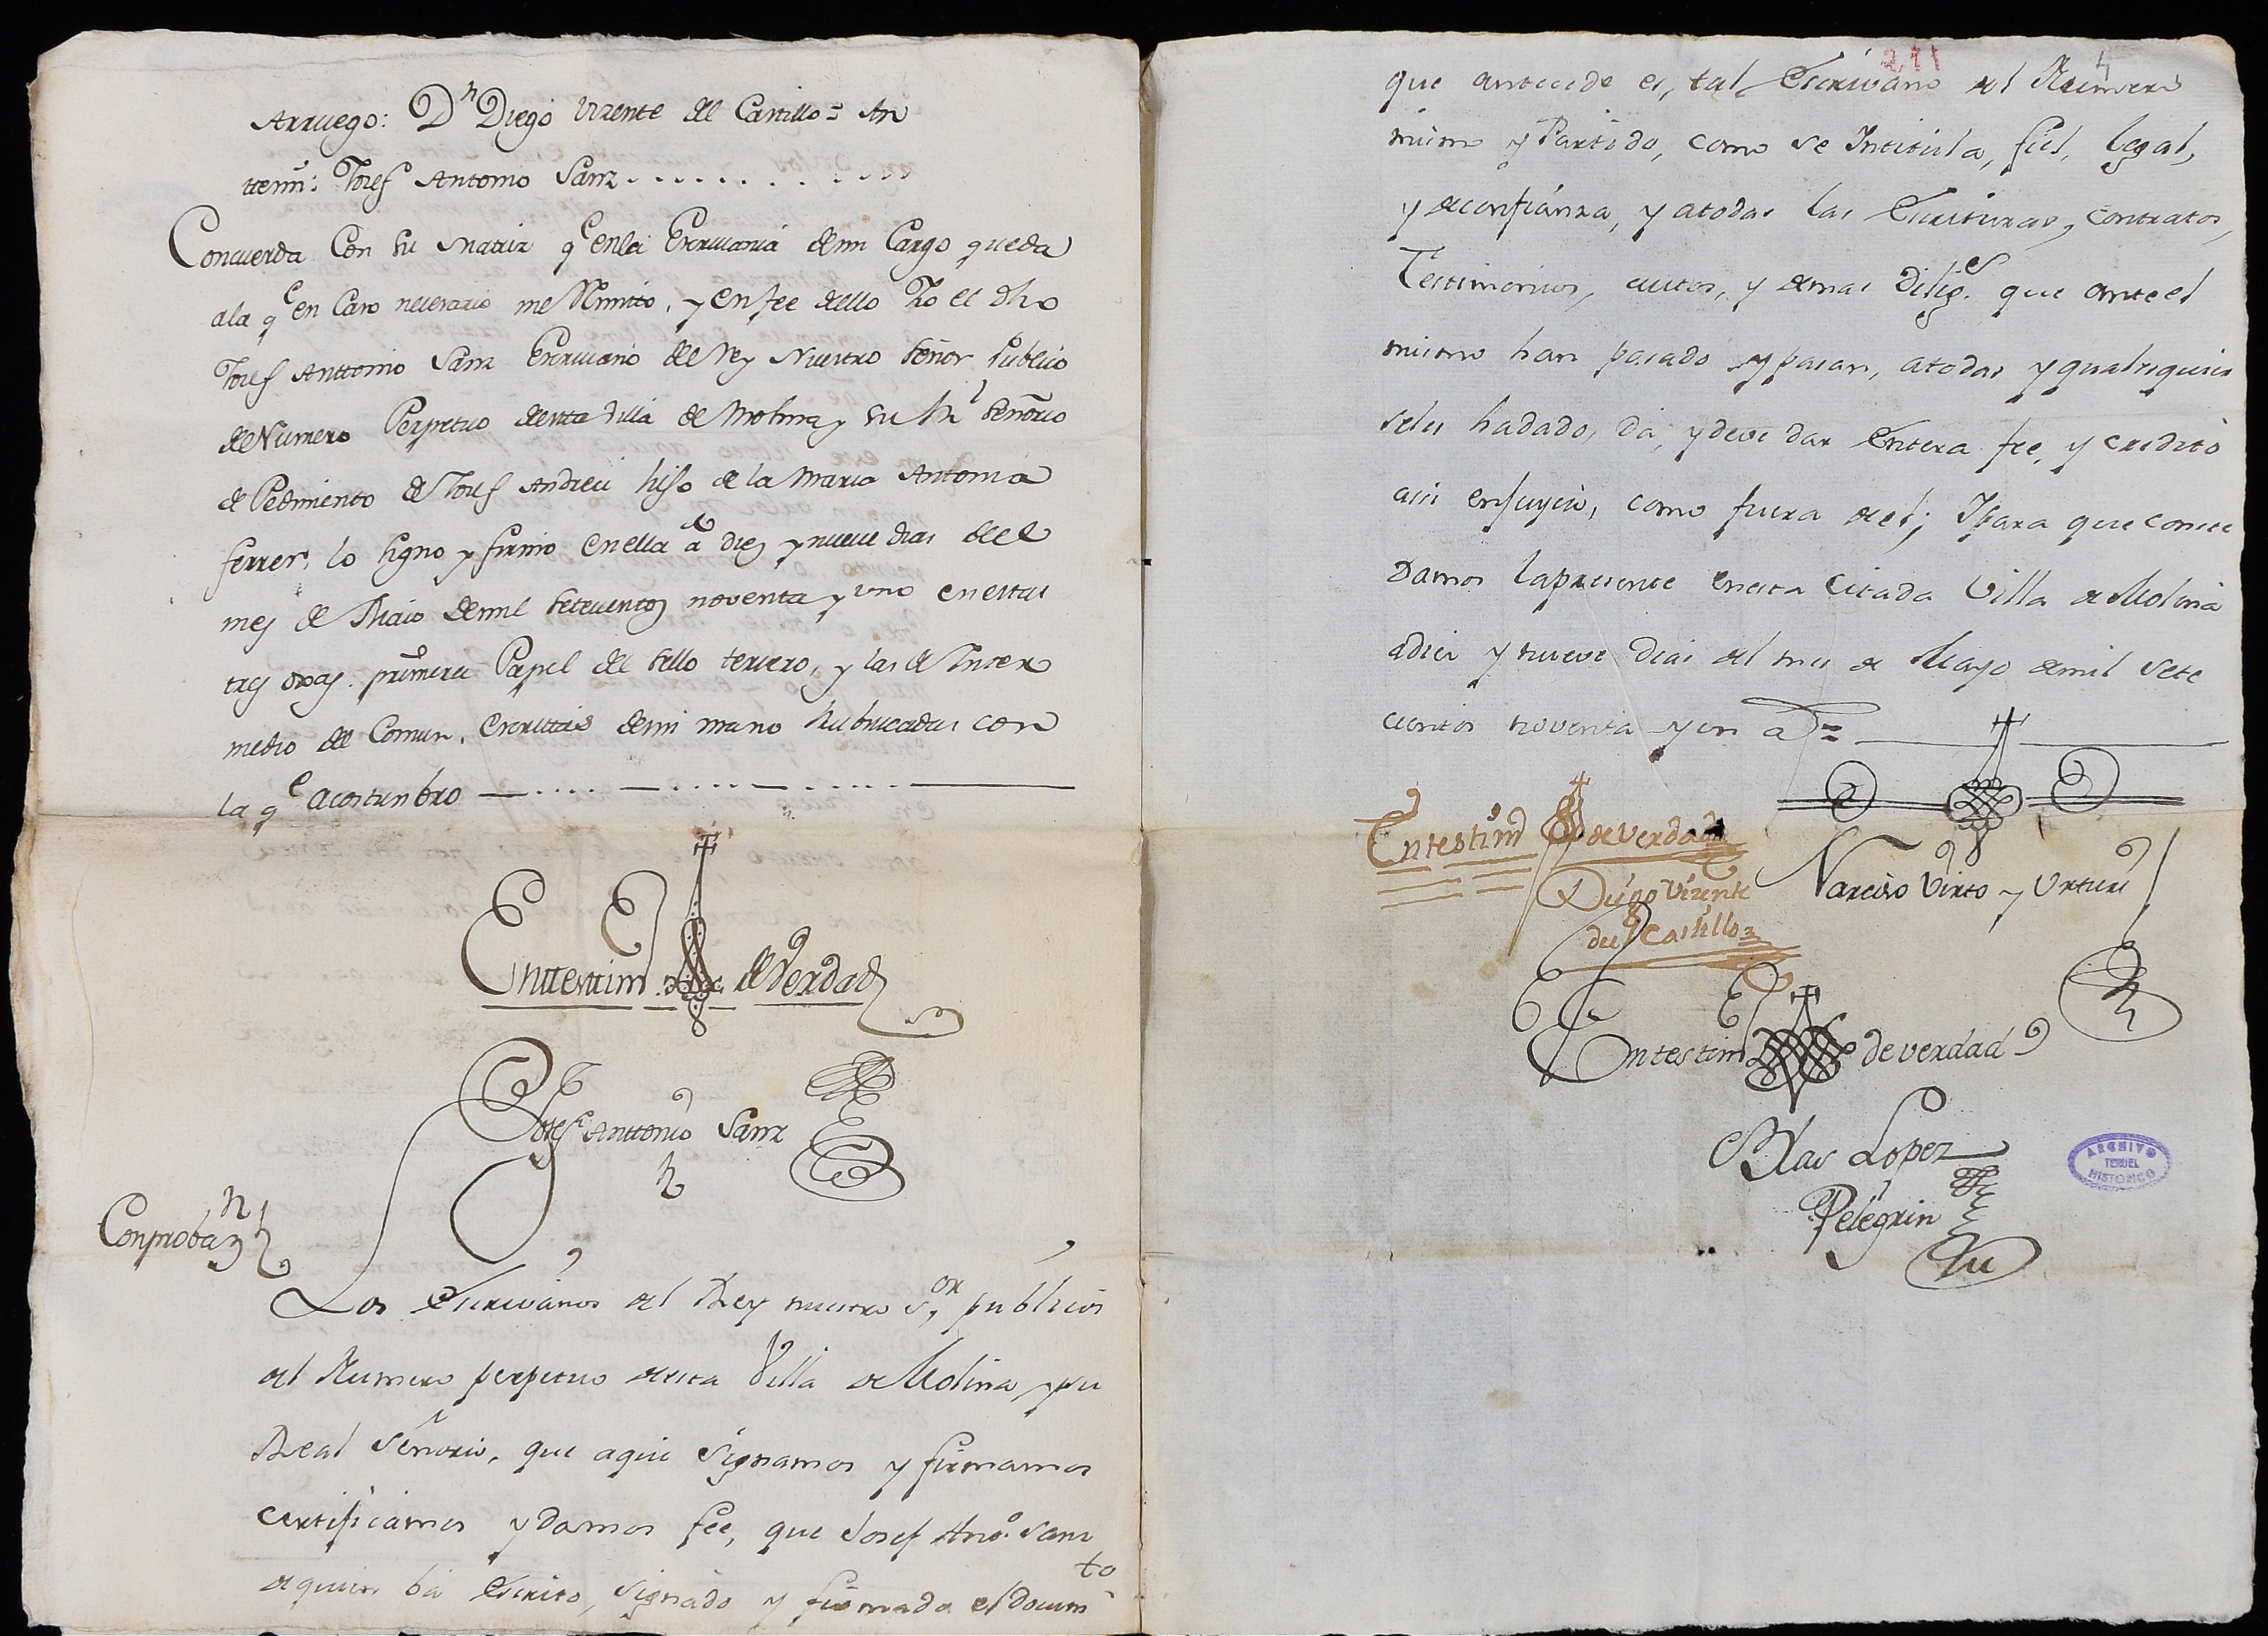 Arruego: Dn Diego Vizente del Castillo = An
ttemi: Josef Antonio Sanz
Concuerda Con su Matriz qe en la Escrivania de mi Cargo queda
a la qe en Caso nezesario me Remito, y en fee dello Yo el dho
Josef Anttonio Sanz Escrivano del Rey Nuestro Señor Publico
del Numero Perpetuo de esta Villa de Molina y su Rl Señorio
de Pedimento de Josef Andreu hijo de la Maria Antonia
Ferrer, lo signo y firmo en ella a diez y nueve dias del
mes de Maio de mil setecientos noventa y uno en estas
tres oxas. primera Papel del sello terzero, y las de Inter
medio del Comun, escrittas de mi mano Rubricadas con
la qe acostunbro
En ttestimo de Verdad
Josef Anttonio Sanz
Conprobazn
Los Escrivanos del Rey nuestro Sor, publicos
del Numero perpetuo de esta Villa de Molina y su
Real Señorio, que aqui signamos y firmamos
certificamos y damos fee, que Josef Anto. Sanz
de quien ba escrito, signado y firmado el Documto
241 4
que antecede es, tal Escrivano del Numero
mismo y Partido, como se Intitula, fiel, legal,
y de confianza, y a todas las Escrituras, contratos,
Testimonios, autos, y demas Diliges. que ante el
mismo han pasado y pasan, a todas y qualesquiera
se les ha dado, da, y deve dar entera fee, y credito
asi en juycio, como fuera de el; Y para que conste
Damos la presente en esta citada Villa de Molina
a diez y nueve dias del mes de Mayo de mil sete
cientos noventa y un a.s =
En testimo de verdad
Diego Vizente
del Castillo
Narciso Virto y Urturi
En testimo de verdad
Blas Lopez
Pelegrin
ARCHIVO
TERUEL
HISTORICO